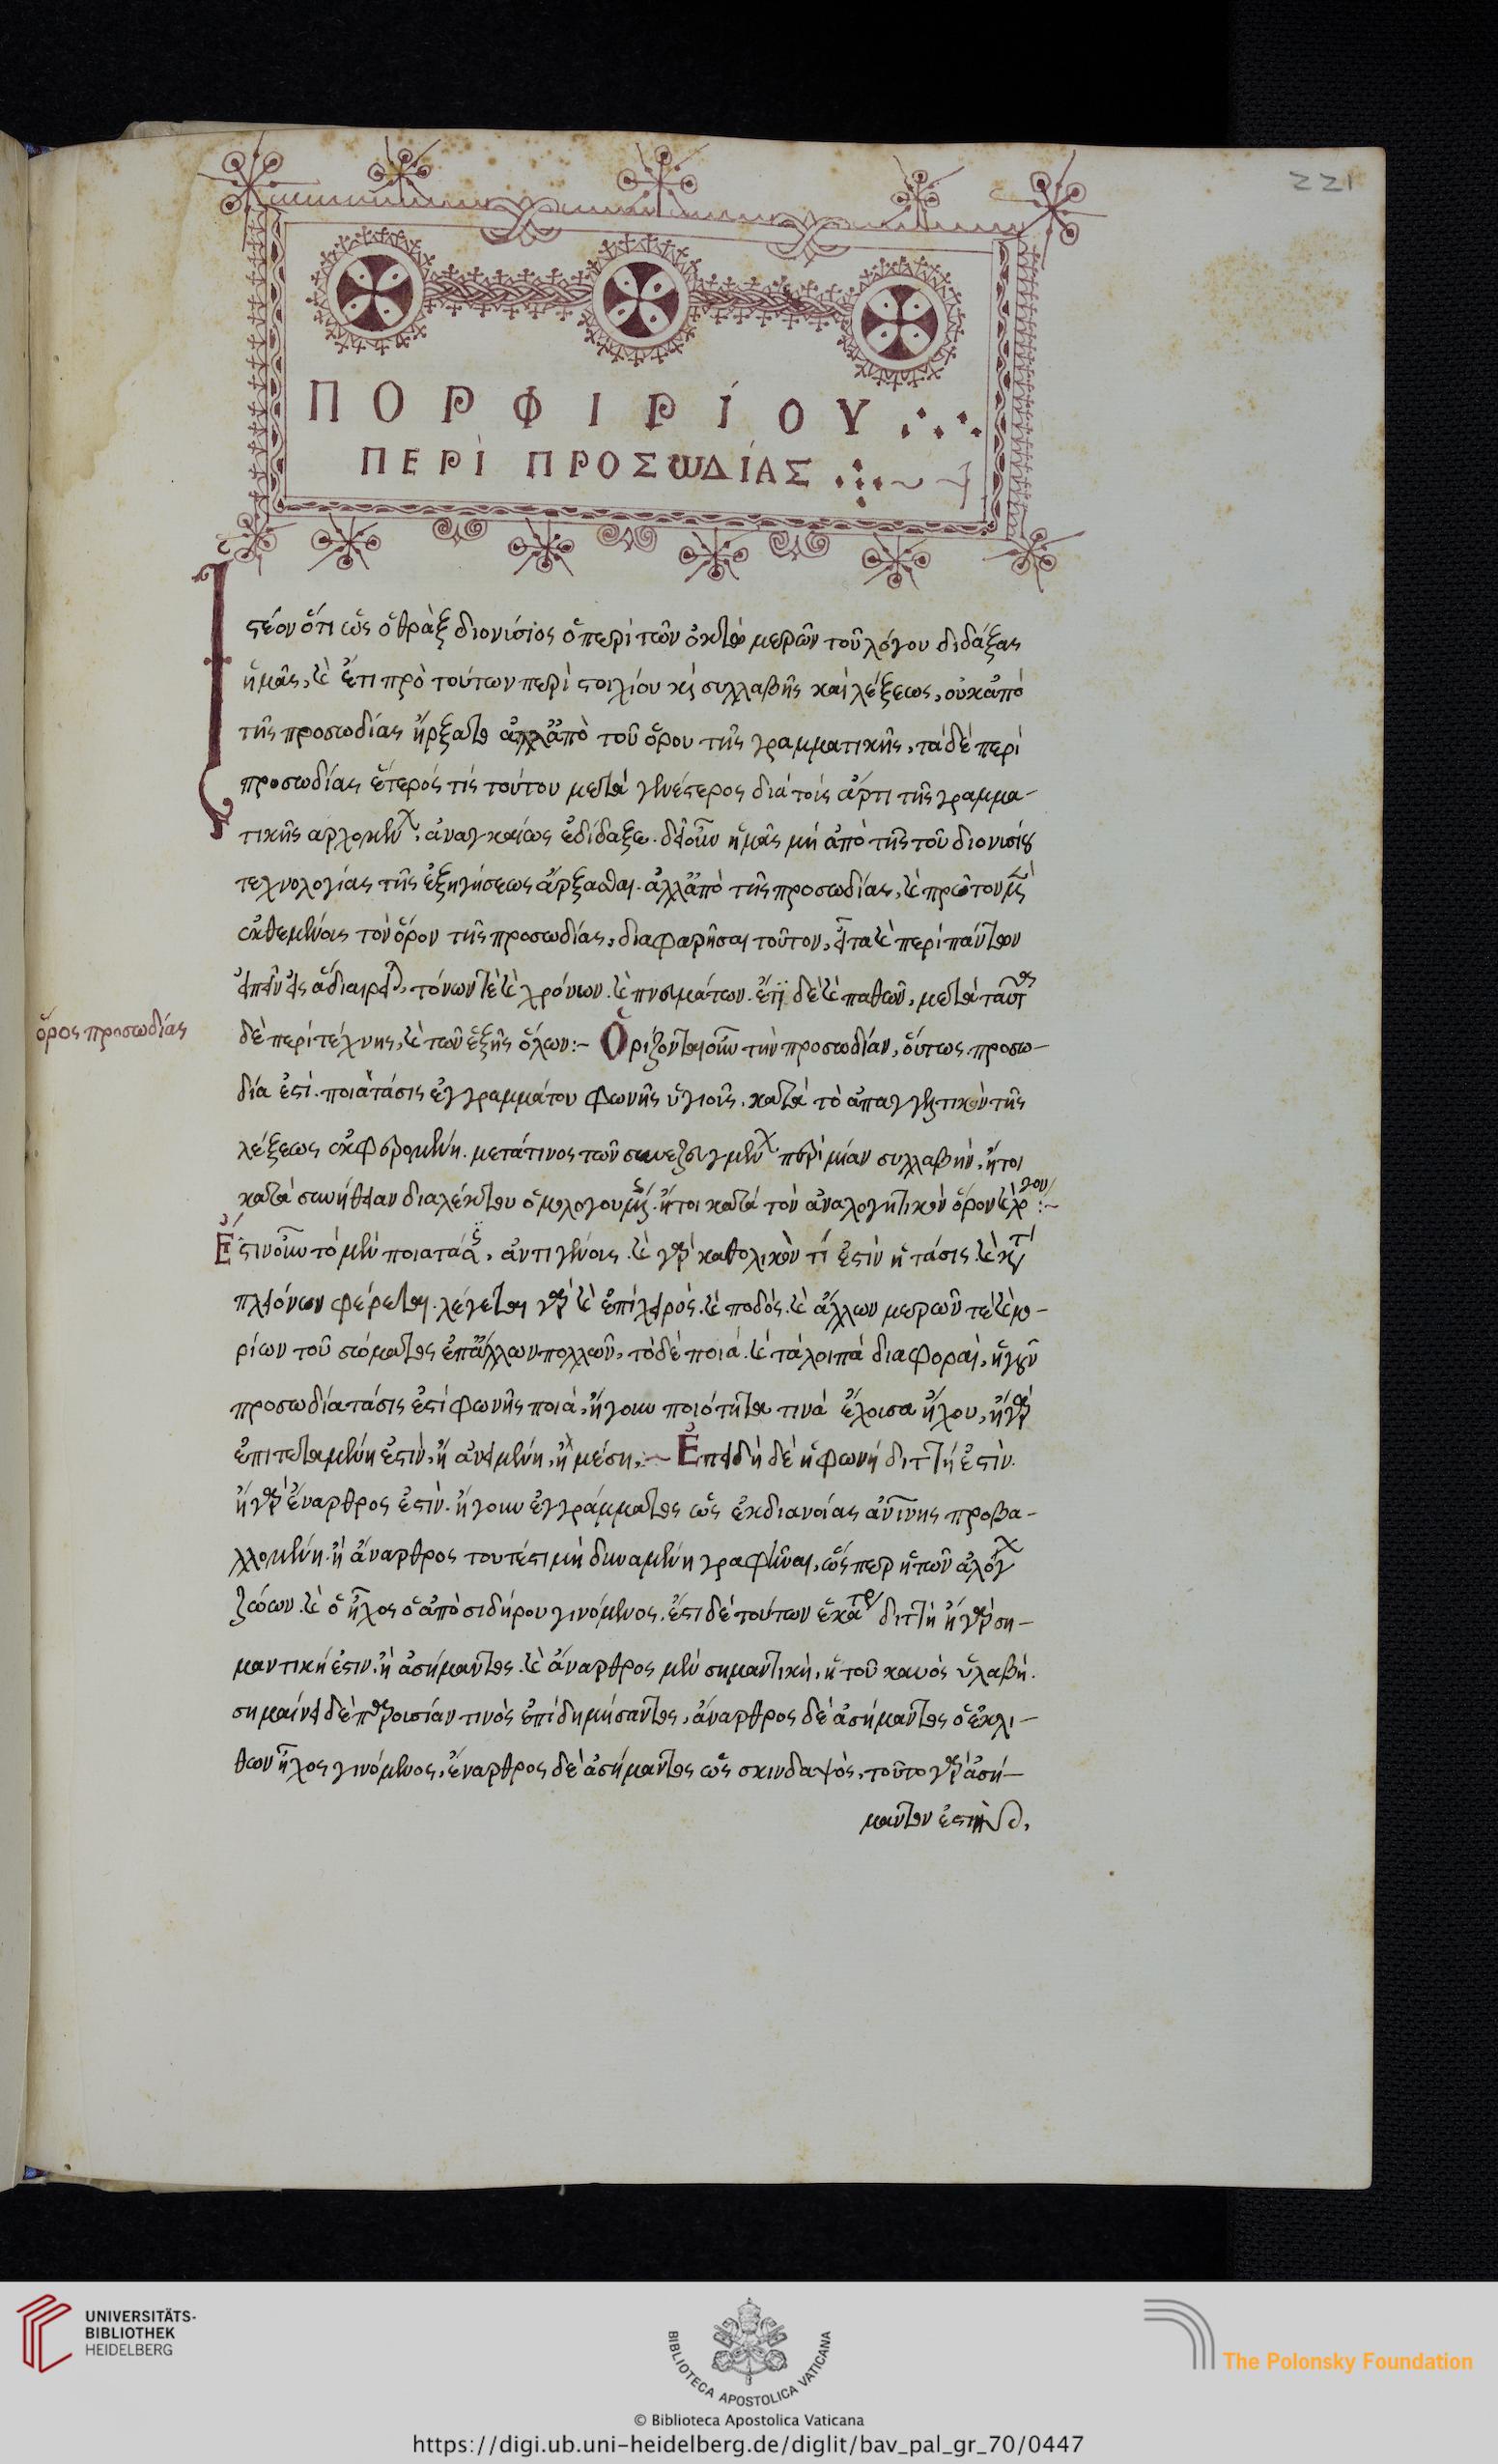 221
ΠΟΡΦΙΡΊΟΥ
ΠΕΡῚ ΠΡΟΣΩΔΊΑΣ
Ἰστέον ὅτι ὡς ὁ θρὰξ διονίσιος ὁ περὶ τῶν ὀκτὼ μερῶν τοῦ λόγου διδάξας
ἡμᾶς, καὶ ἔτι πρὸ τούτων περὶ στοιχίου καὶ συλλαβῆς καὶ λέξεως, οὐκ ἀπὸ
τῆς προσωδίας ἤρξατο ἀλλ' ἀπὸ τοῦ ὅρου τῆς γραμματικῆς, τὰ δὲ περὶ
προσωδίας ἕτερός τίς τούτου μετὰ γενέστερος διὰ τοὶς ἄρτι τῆς γραμμα-
τικῆς ἀρχομένους, ἀναγκαίως ἐδίδαξε. δεῖ οὖν ἡμᾶς μὴ ἀπὸ τῆς τοῦ διονισίου
τεχνολογίας τῆς ἐξηγήσεως ἄρξασθαι. ἀλλ' ἀπὸ τῆς προσωδίας, καὶ πρῶτον μὲν
ἐκθεμένοις τὸν ὅρον τῆς προσωδίας, διασαφῆσαι τοῦτον, εἶτα καὶ περὶ πάντων
τόνων τὲ καὶ χρόνων. καὶ πνευμάτων. ἔτι δὲ καὶ παθῶν, μετὰ ταῦτα
ὅρος προσωδίας
δὲ περὶ τέχνης, καὶ τῶν ἑξῆς ὅλων:- Ὁρίζονται οὖν τὴν προσωδίαν, οὕτως. προσω-
δία ἐστὶ. ποιὰ τάσις ἐγγραμμάτου φωνῆς ὑγιοῦς. κατὰ τὸ ἀπαγγελτικὸν τῆς
λέξεως ἐκφερομένη. μετά τινος τῶν συνεζευγμένων περὶ μίαν συλλαβὴν. ἤτοι
κατὰ συνήθειαν διαλέκτου ὁμολογουμένης. ἤτοι κατὰ τὸν ἀναλογητικὸν ὅρον καὶ λόγον:-
Ἔστιν οὖν τὸ μὲν ποιὰ τάσις, ἀντὶ γένους. καὶ γὰρ καθολικὸν τί ἐστὶν ἡ τάσις. καὶ κατὰ
πλειόνων φέρεται. λέγεται γὰρ καὶ ἐπὶ χειρὸς. καὶ ποδὸς. καὶ ἄλλων μερῶν τὲ καὶ μο-
ρίων τοῦ σώματος ἐπ' ἄλλων πολλῶν, τὸ δὲ ποιὰ. καὶ τὰ λοιπὰ διαφοραὶ, ἤγουν
προσωδία τάσις ἐστὶ φωνῆς ποιὰ, ἤγουν ποιότητα τινὰ ἔχουσα ἤχου, ἢ γὰρ
ἐπιτεταμένη ἐστὶν, ἢ ἀνειμένη, ἢ μέση:- Ἐπειδὴ δὲ ἡ φωνὴ διττή ἐστὶν.
ἢ γὰρ ἔναρθρος ἐστὶν. ἤγουν ἐγγράμματος ὡς ἐκ διανοίας προβα-
λλομένη. ἢ ἄναρθρος τουτέστι μὴ δυναμένη γραφῆναι, ὥσπερ ἡ τῶν ἀλόγων
ζώων. καὶ ὁ ἦχος ὁ ἀπὸ σιδήρου γινόμενος. ἔστι δὲ τούτων ἑκάτερος διττὴ ἢ γὰρ ση-
μαντική ἐστιν. ἢ ἀσήμαντος. καὶ ἄναρθρος μὲν σημαντικὴ, ἡ τοῦ κυνὸς ὑλαβὴ.
σημαίνει δὲ παρουσίαν τινὸς ἐπιδημήσαντος, ἄναρθρος δὲ ἀσήμαντος ὁ ἐκ λί-
θων ἦχος γινόμενος, ἔναρθρος δὲ ἀσήμαντος ὡς σκινδαψὸς, τοῦτο γὰρ ἀσή-
μαντον ἐστὶν
UNIVERSITÄTS-
BIBLIOTHEK
HEIDELBERG
BIBLIOTECA APOSTOLICA VATICANA
The Polonsky Foundation
© Biblioteca Apostolica Vaticana
https://digi.ub.uni-heidelberg.de/diglit/bav_pal_gr_70/0447